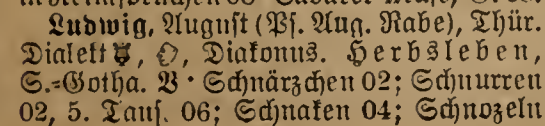 Ludwig, August (Ps. Aug. Rabe), Thür.
Dialekt, Diakonus. Herbsleben,
S.-Gotha. V · Schnärzchen 02; Schnurren
02, 5. Taus. 06; Schnaken 04; Schnozeln